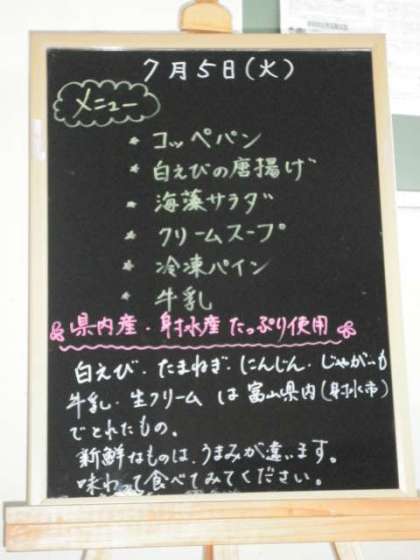 7月5日(火)
メニュー
* コッペパン
* 白えびの唐揚げ
* 海藻サラダ
* クリームスープ
* 冷凍パイン
* 牛乳
県内産・射水産たっぷり使用
白えび・たまねぎ・にんじん・じゃがいも
牛乳・生クリーム は 富山県内(射水市)
でとれたもの。
新鮮なものは、うまみが違います。
味わって食べてみてください。